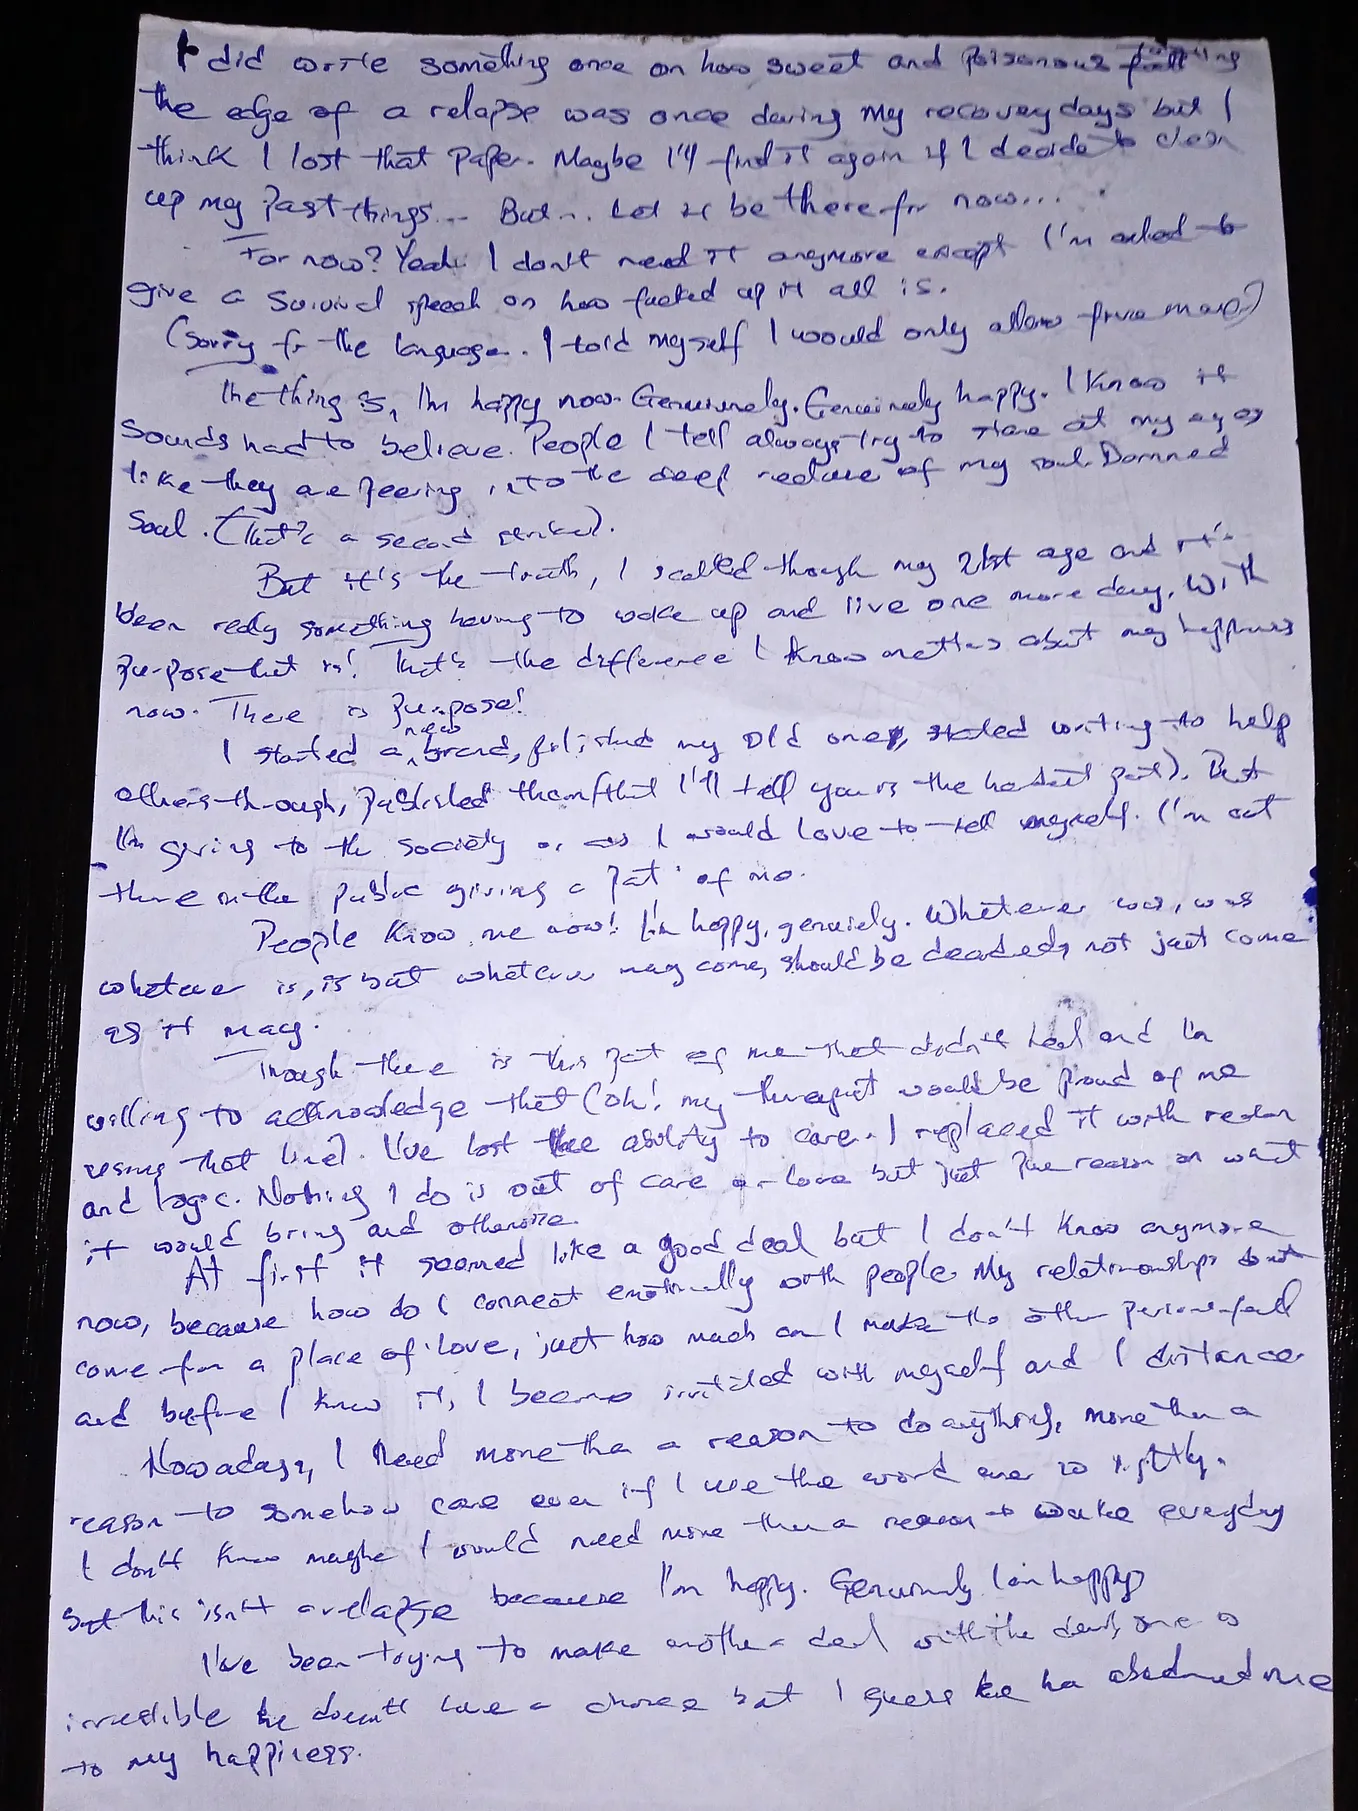 I did write something once on how sweet and poisonous feeling
the edge of a relapse was once during my recovery days but I
think I lost that paper. Maybe I'll find it again if I decide to clean
up my past things... But... Let it be there for now...
For now? Yeah. I don't need it anymore except I'm asked to
give a survival speech on how fucked up it all is.
(Sorry for the language. I told myself I would only allow five more)
The thing is, I'm happy now. Genuinely. Genuinely happy. I know it
sounds hard to believe. People I tell always try to stare at my eyes
like they are peering into the deep recluse of my soul. Damned
soul. (That's a second strike).
But it's the truth, I scaled through my 21st age and it's
been really something having to wake up and live one more day. With
purpose that is! That's the difference I know matters about my happiness
now. There is purpose!
I started a new brand, polished my old ones, started writing to help
others through, published them (that I'll tell you is the hardest part). But
I'm giving to the society or as I would love to tell myself. I'm out
there in the public giving a part of me.
People know me now! I'm happy, genuinely. Whatever was, was
whatever is, is but whatever may come, should be decided, not just come
as it may.
Though there is this part of me that didn't heal and I'm
willing to acknowledge that (oh! my therapist would be proud of me
using that line). I've lost the ability to care. I replaced it with reason
and logic. Nothing I do is out of care or love but just pure reason on what
it would bring and otherwise.
At first it seemed like a good deal but I don't know anymore
now, because how do I connect emotionally with people. My relationships don't
come from a place of love, just how much can I make the other person feel
and before I know it, I become irritated with myself and I distance.
Nowadays, I need more than a reason to do anything, more than a
reason to somehow care even if I use the word ever so lightly.
I don't know maybe I would need more than a reason to wake everyday
but this isn't a relapse because I'm happy. Genuinely I am happy
I've been trying to make another deal with the devil, one so
irresistible he doesn't have a choice but I guess he has abandoned me
to my happiness.